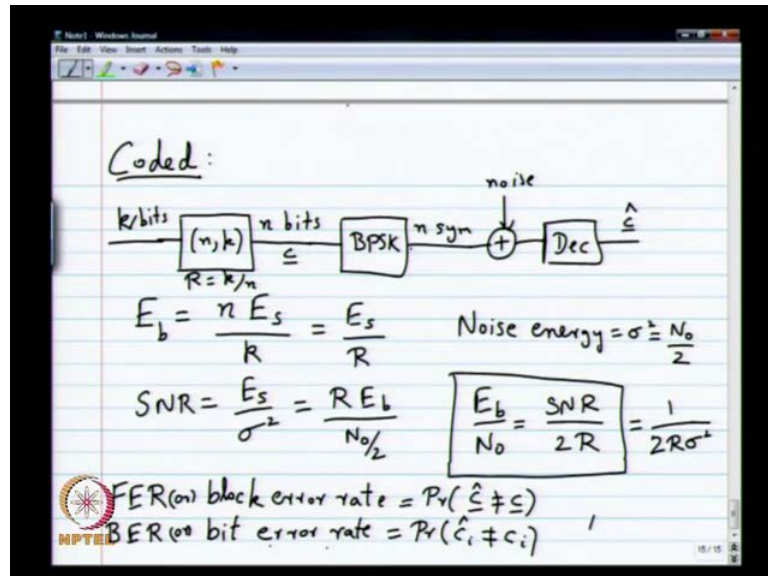 Note1 - Windows Journal
File Edit View Insert Actions Tools Help
Coded:
noise
k bits (n, k) n bits c BPSK n sym + Dec ĉ
R = k/n
E_b = n E_s / k = E_s / R
Noise energy = σ² = N_0 / 2
SNR = E_s / σ² = R E_b / N_0/2
E_b / N_0 = SNR / 2R = 1 / 2Rσ²
FER (or) block error rate = Pr(ĉ ≠ c)
BER (or) bit error rate = Pr(ĉ_i ≠ c_i)
NPTEL
15 / 15